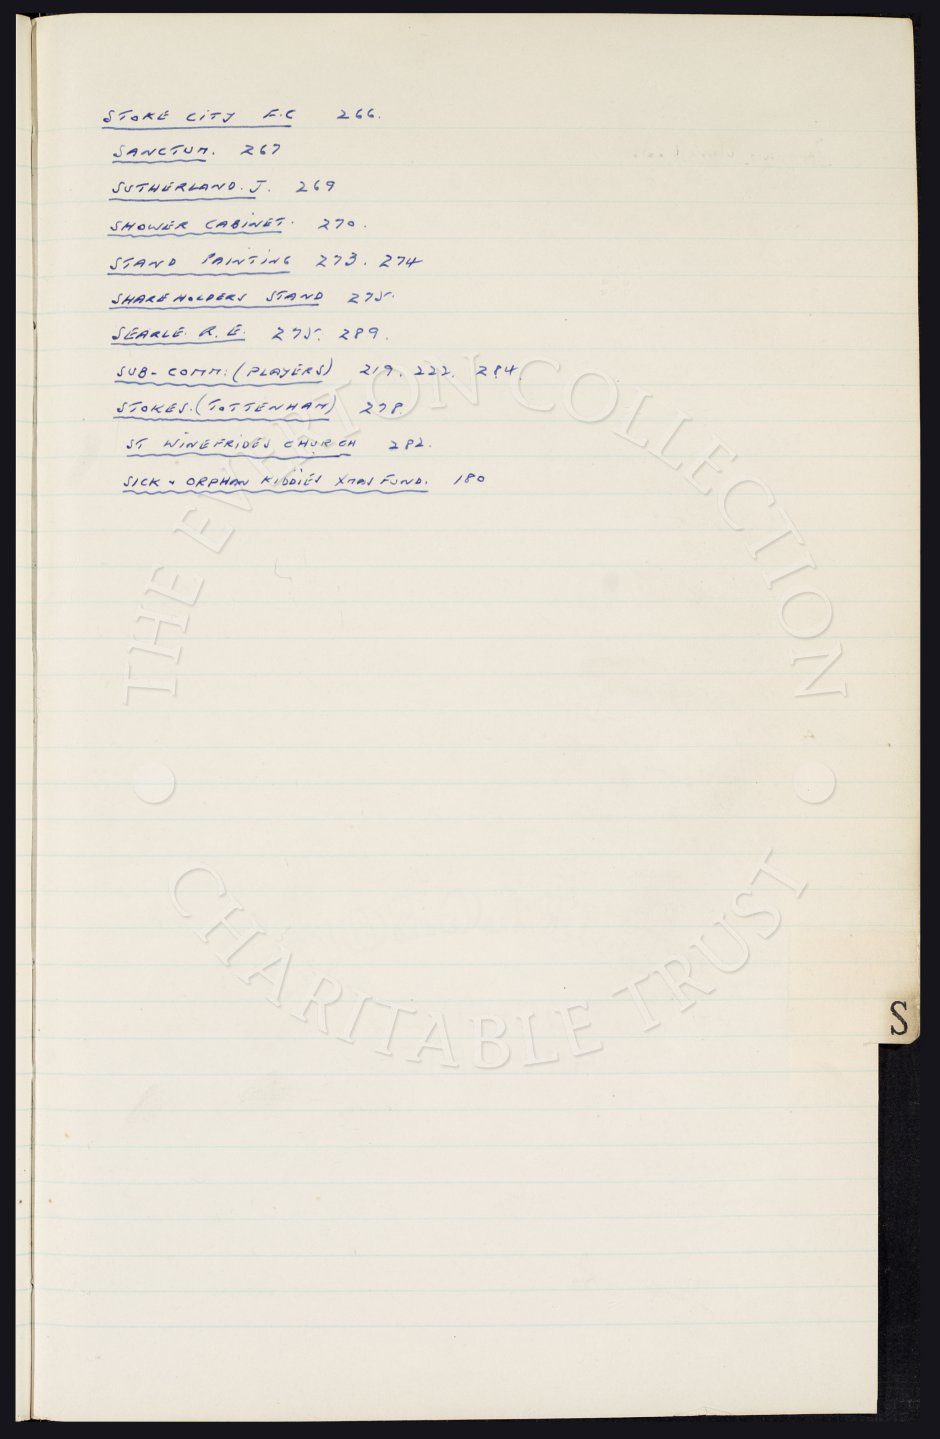 STOKE CITY F.C 266.
SANCTUM. 267
SUTHERLAND. J. 269
SHOWER CABINET. 270.
STAND PAINTING 273. 274
SHAREHOLDERS STAND 275.
SEARLE. R. E. 275. 289.
SUB-COMM: (PLAYERS) 219. 222. 284.
STOKES. (TOTTENHAM) 278.
ST WINEFRIDES CHURCH 282.
SICK + ORPHAN KIDDIES XMAS FUND. 180
THE EVERTON COLLECTION
CHARITABLE TRUST
S